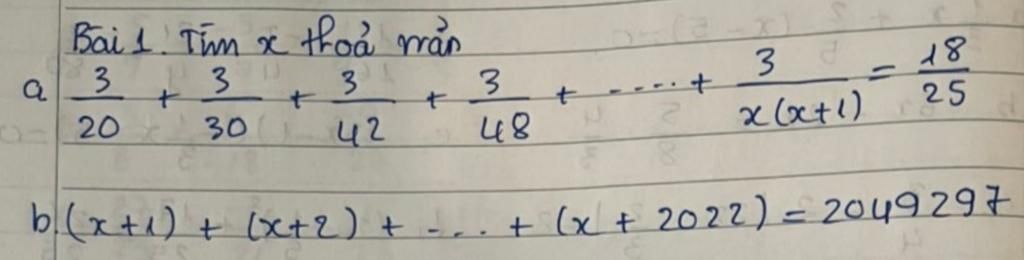 Bài 1. Tìm x thoả mãn
a 3/20 + 3/30 + 3/42 + 3/48 + ..... + 3/x(x+1) = 18/25
b. (x+1) + (x+2) + ... + (x + 2022) = 2049297